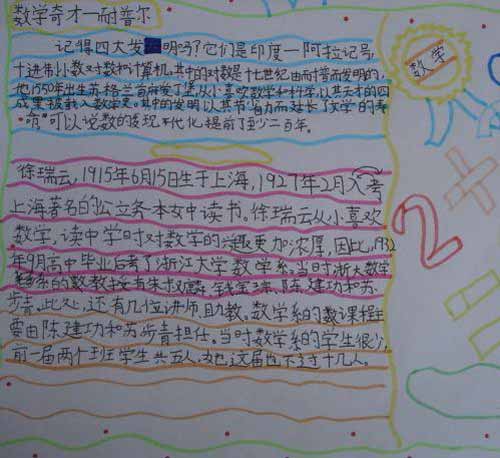 数学奇才一耐普尔
记得四大发明吗?它们是印度一阿拉记号,
十进制小数对数和计算机。其中的对数是十七世纪由耐普尔发明的,
他1550年出生苏格兰首府爱丁堡从小喜欢数学和科学以其天才的四
成果被载入数学史。其中的发明以其节省力而延长了文学的寿
命"可以说数的发现不代化提前了至少二百年。
徐瑞云,1915年6月15日生于上海,1927年2月入考
上海著名的公立务本女中读书。徐瑞云从小喜欢
数学,读中学时对数学的兴趣更加浓厚,因比,1932
年9月高中毕业后考了浙江大学数学系。当时浙大数学
系的数教授有朱叔麟、钱宝琮、陈建功和苏
步青。此处,还有几位讲师、助教。数学系的数课程主
要由陈建功和苏步青担任。当时数学系的学生很少,
前一届两个班学生共五人,她这届也不过十几人。
数学
2